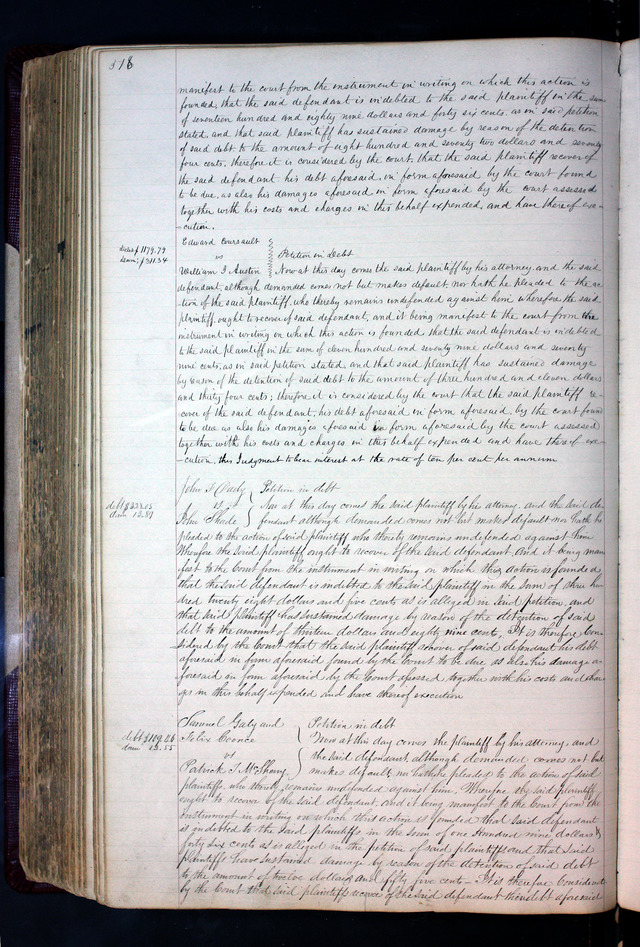 518
manifest to the court from the instrument in writing on which this action is
founded, that the said defendant is indebted to the said plaintiff in the sum
of seventeen hundred and eighty nine dollars and forty six cents, as in said petition
stated, and that said plaintiff has sustained damage by reason of the detention
of said debt to the amount of eight hundred and seventy two dollars and seventy
four cents, therefore it is considered by the court, that the said plaintiff recover of
the said defendant his debt aforesaid, in form aforesaid by the court found
to be due, as also his damages aforesaid in form aforesaid by the court assessed
together with his costs and charges in this behalf expended, and have thereof exe-
-cution.
Edward Coursault
debt $ 1179.79
vs Petition in Debt
dam: $ 311.34
William I Austin Now at this day comes the said plaintiff by his attorney, and the said
defendant, although demanded comes not but makes default, nor hath he pleaded to the ac-
tion of the said plaintiff, who thereby remains undefended against him wherefore the said
plaintiff, ought to recover of said defendant, and it being manifest to the court from the
instrument in writing on which this action is founded, that the said defendant is indebted
to the said plaintiff in the sum of eleven hundred and seventy nine dollars and seventy
nine cents, as in said petition stated, and that said plaintiff has sustained damage
by reason of the detention of said debt to the amount of three hundred and eleven dollars
and thirty four cents; therefore it is considered by the court that the said plaintiff re-
cover of the said defendant, his debt aforesaid in form aforesaid, by the court found
to be due as also his damages aforesaid in form aforesaid by the court assessed
together with his costs and charges in this behalf expended and have thereof exe-
-cution, this Judgment to bear interest at the rate of ten per cent per annum
John F Petition in debt
debt $328.05
vs Now at this day comes the said plaintiff by his attorney, and the said de-
dam 13.89
John Shade fendant although demanded comes not but makes default nor hath he
pleaded to the action of said plaintiff who thereby remains undefended against him
Wherefore the said plaintiff ought to recover of the said defendant, And it being mani
fest to the Court from the instrument in writing on which this action is founded
that the said defendant is indebted to the said plaintiff in the sum of three hun
dred twenty eight dollars and five cents as is alleged in said petition, and
that said plaintiff has sustained damage by reason of the detention of said
debt to the amount of thirteen dollars and eighty nine cents, It is therefore Con
sidered by the Court that the said plaintiff recover of said defendant his debt
aforesaid in form aforesaid found by the Court to be due as also his damage a-
foresaid in form aforesaid by the Court assessed together with his costs and char
ges in this behalf expended and have thereof execution
Samuel Gaty and Petition in debt
debt $109.46
Felix Coonce Now at this day comes the plaintiff by his attorney, and
dam 12.55
vs the said defendant although demanded comes not but
Patrick I McSherry makes default, nor hath he pleaded to the action of said
plaintiffs, who thereby remains undefended against him. Wherefore the said plaintiff
ought to recover of the said defendant, And it being manifest to the Court from the
instrument in writing on which this action is founded that said defendant
is indebted to the said plaintiffs in the sum of one hundred nine dollars &
forty six cents as is alleged in the petition of said plaintiffs and that said
plaintiffs have sustained damage by reason of the detention of said debt
to the amount of twelve dollars and fifty five cents - It is therefore Considered
by the Court that said plaintiffs recover of the said defendant their debt aforesaid